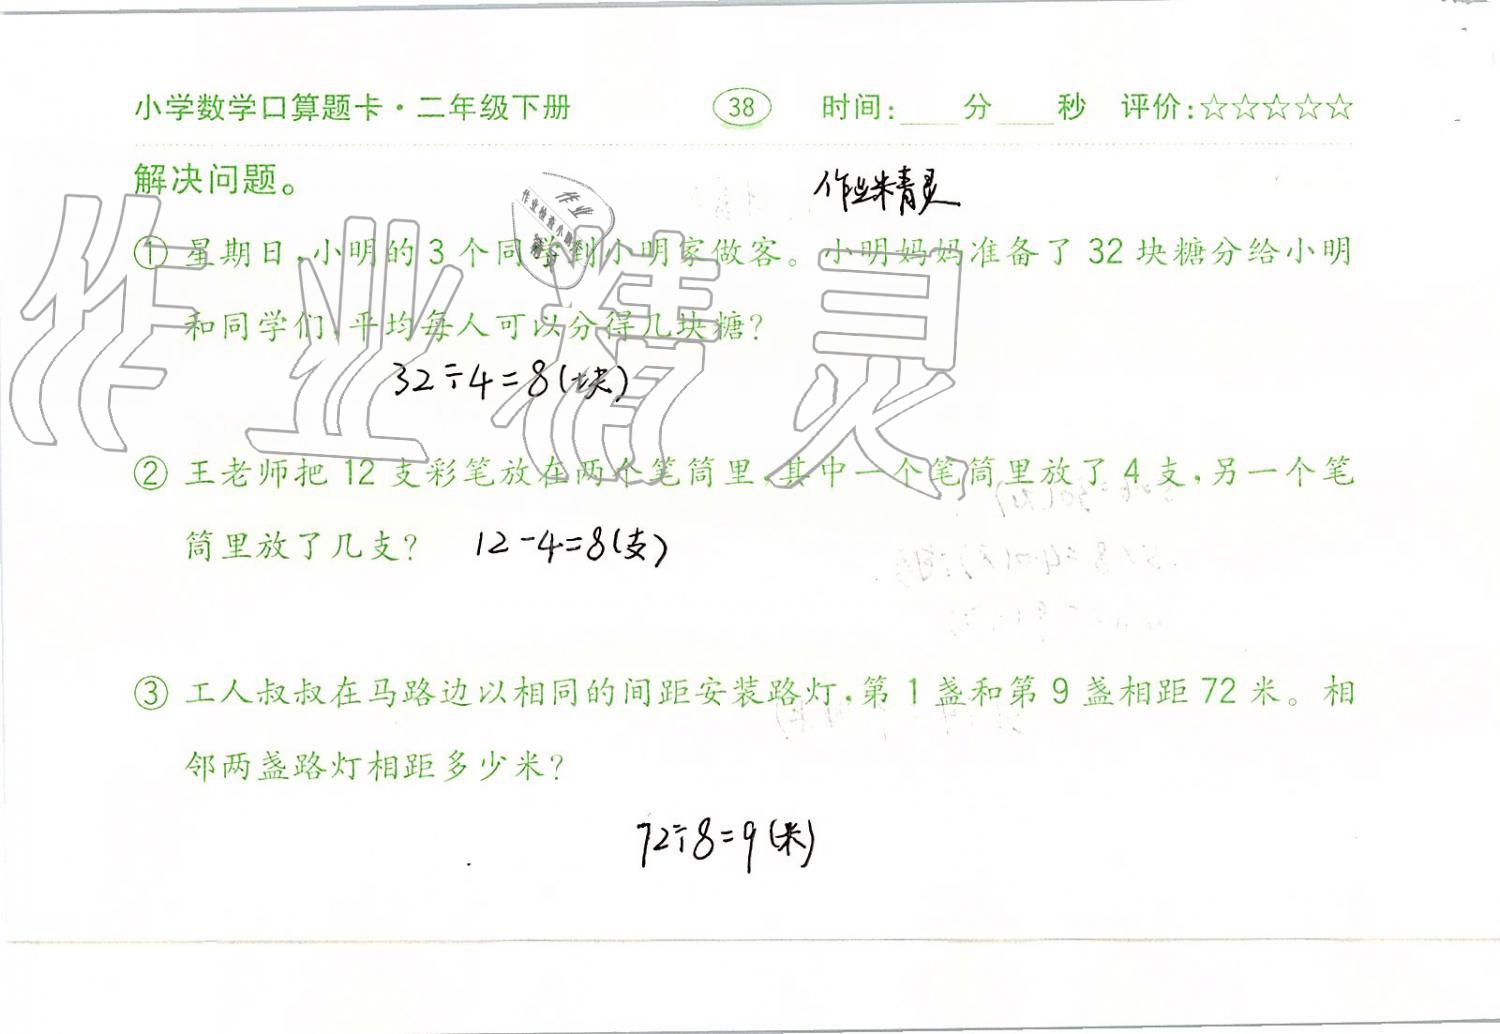 小学数学口算题卡·二年级下册 38 时间:____分____秒 评价:☆☆☆☆☆
解决问题。
作业精灵
① 星期日,小明的 3 个同学到小明家做客。小明妈妈准备了 32 块糖分给小明
和同学们,平均每人可以分得几块糖?
32÷4=8(块)
② 王老师把 12 支彩笔放在两个笔筒里,其中一个笔筒里放了 4 支,另一个笔
筒里放了几支? 12-4=8(支)
③ 工人叔叔在马路边以相同的间距安装路灯,第 1 盏和第 9 盏相距 72 米。相
邻两盏路灯相距多少米?
72÷8=9(米)
作业精灵
作业
作业检查小助手